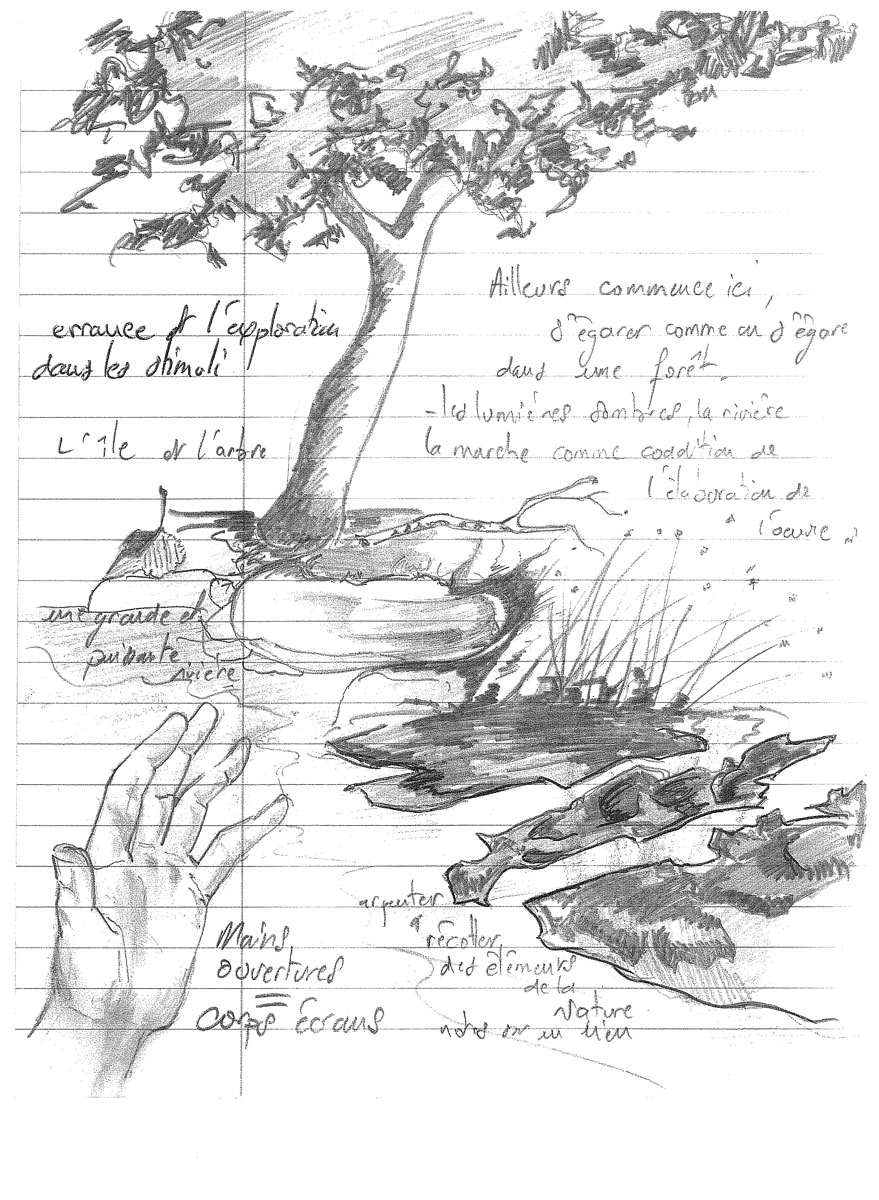 Ailleurs commence ici,
s'égarer comme on s'égare
dans une forêt.
- les lumières sombres, la rivière
la marche comme condition de
l'élaboration de
l'oeuvre
errance et l'exploration
dans les stimuli
L'île et l'arbre
une grande et
puissante
rivière
Mains
ouvertures
corps écrans
arpenter
récolter
des éléments
de la
Nature
notes sur un lieu